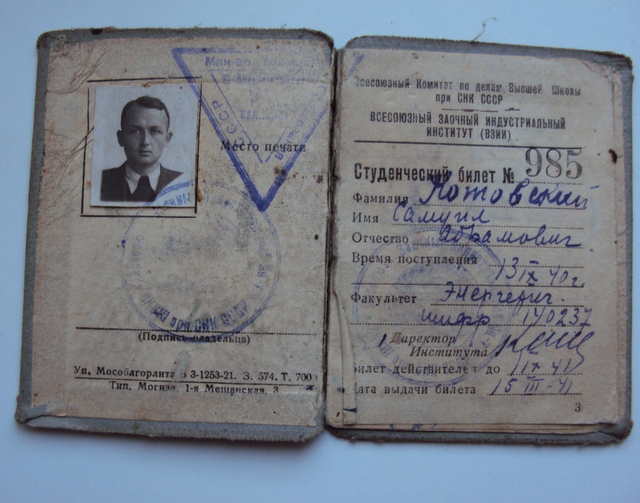 Место печати
СССР
при СНК СССР
(Подпись владельца)
Уп. Мособлгорлита З-1253-21. З. 574. Т. 700
Тип. Могиз. 1-я Мещанская, 3
Всесоюзный Комитет по делам Высшей Школы
при СНК СССР
ВСЕСОЮЗНЫЙ ЗАОЧНЫЙ ИНДУСТРИАЛЬНЫЙ
ИНСТИТУТ (ВЗИИ)
Студенческий билет № 985
Фамилия Котовский
Имя Самуил
Отчество Абрамович
Время поступления
13 IX 40 г.
Факультет Энергетич.
шифр 140237
Директор
Института
Билет действителен до 1 IX 41
Дата выдачи билета 15 III-41
3